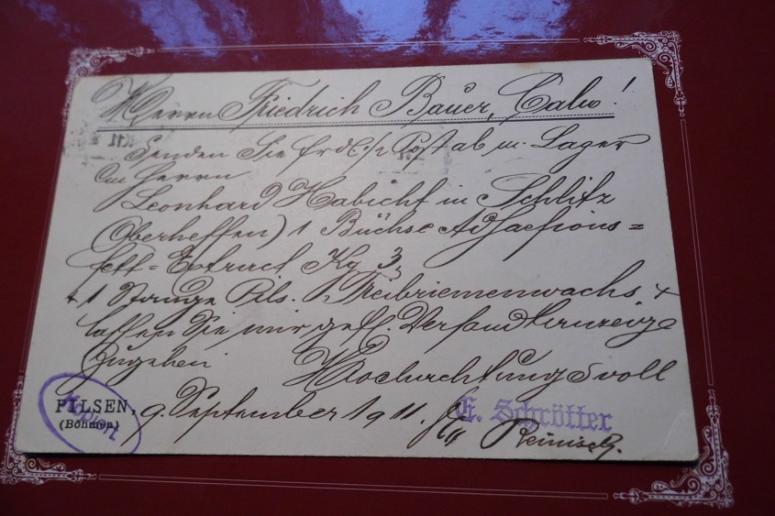 Herrn Friedrich Bauer, Calw!
Senden Sie frdl. p Post ab m. Lager
an Herrn
Leonhard Habicht in Schlitz
(Oberhessen) 1 Büchse Adhaesions=
fett=Extract Kg 3
+ 1 Stange Pils. Treibriemenwachs, +
lassen Sie mir gefl. Versandtanzeige
zugehen Hochachtungsvoll
PILSEN, 9. September 1911.
(Böhmen)
E. Schrötter